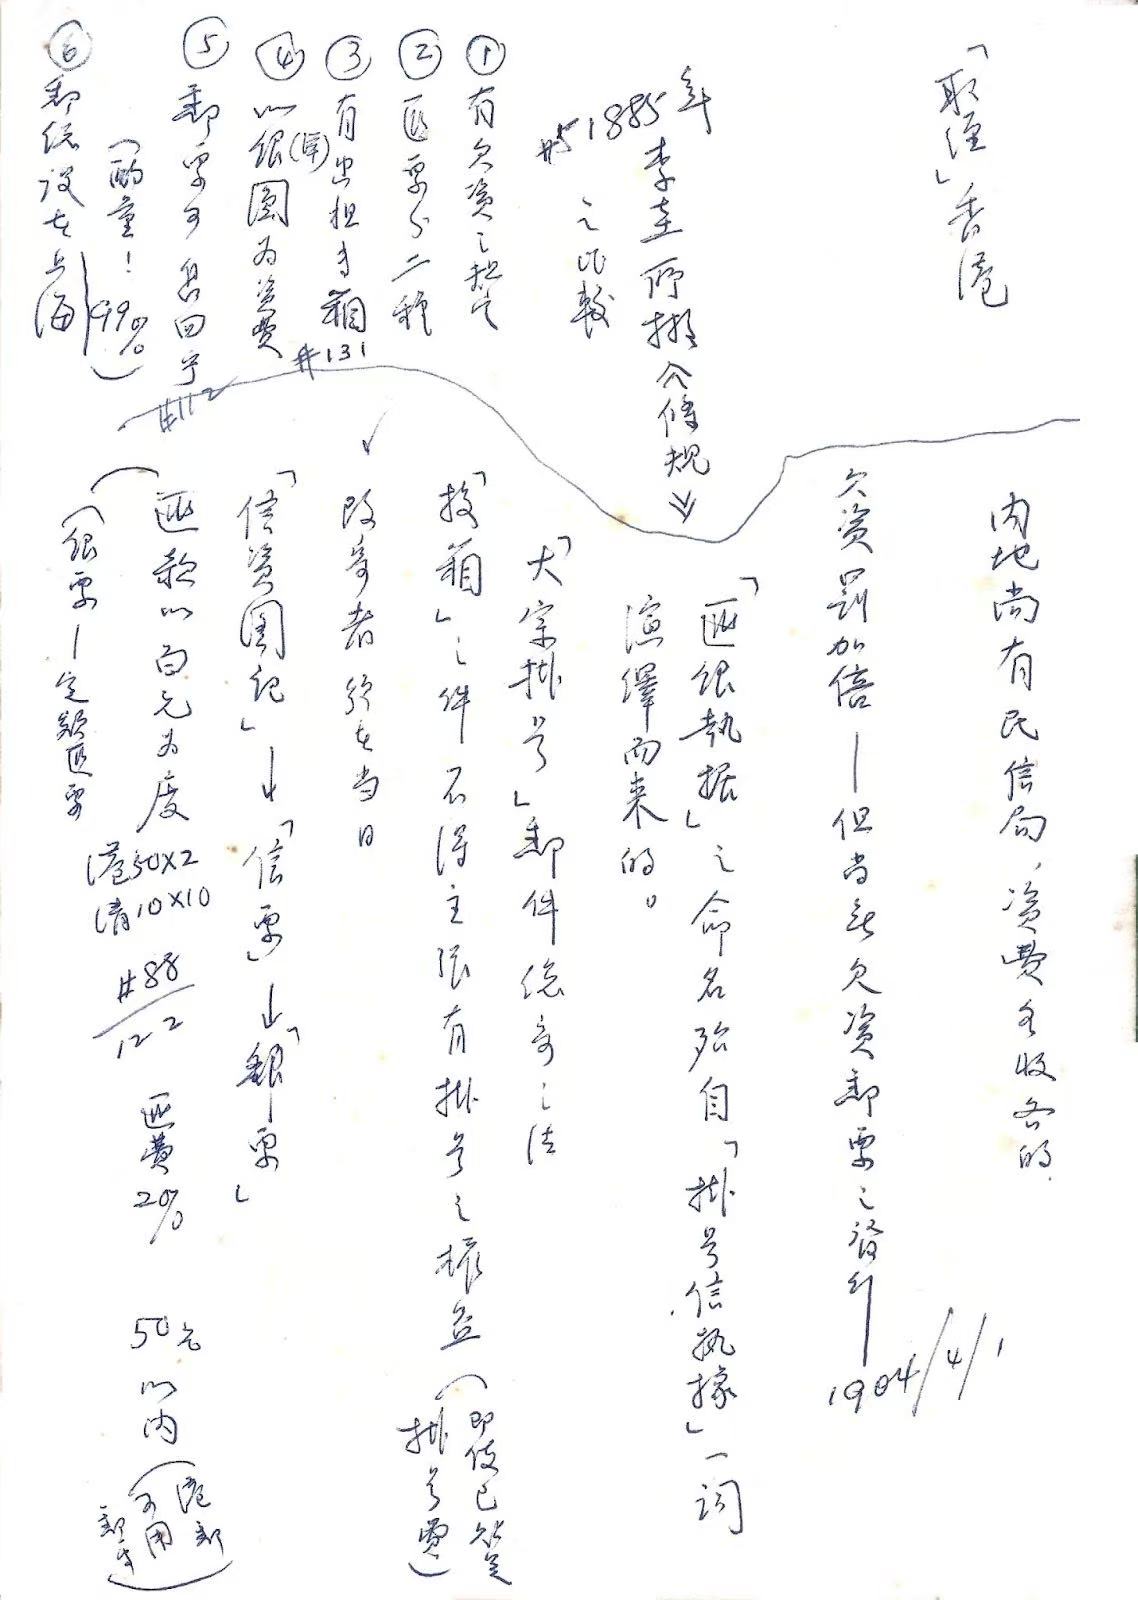 「取涇」香港
年
1885
#5
李圭所擬入條規
之比較
① 有欠資之規定
② 匯票分二種
③ 有出担当箱
#131
④ 以銀圓為資費
⑤ 郵票可 舀回亨
#112
(酌量! 99%)
⑥ 郵總設在上海
內地尚有民信局,資費各收各的.
欠資罰加倍—但尚無欠資郵票之發行—1904/4/1
「匯銀執据」之命名殆自「掛号信執據」一詞
演繹而來的。
「大宗掛号」郵件總寄之法
「投箱」之件不得主張有掛号之權益
(即使已貼足
掛号費)
改寄者 須在當日
「信資圖記」→「信票」→「郵票」
匯款以百元為度
(銀票—定額匯票
港50×2
清10×10
#88
122
匯費
2%
50元以內
(港郵
可用
郵票)